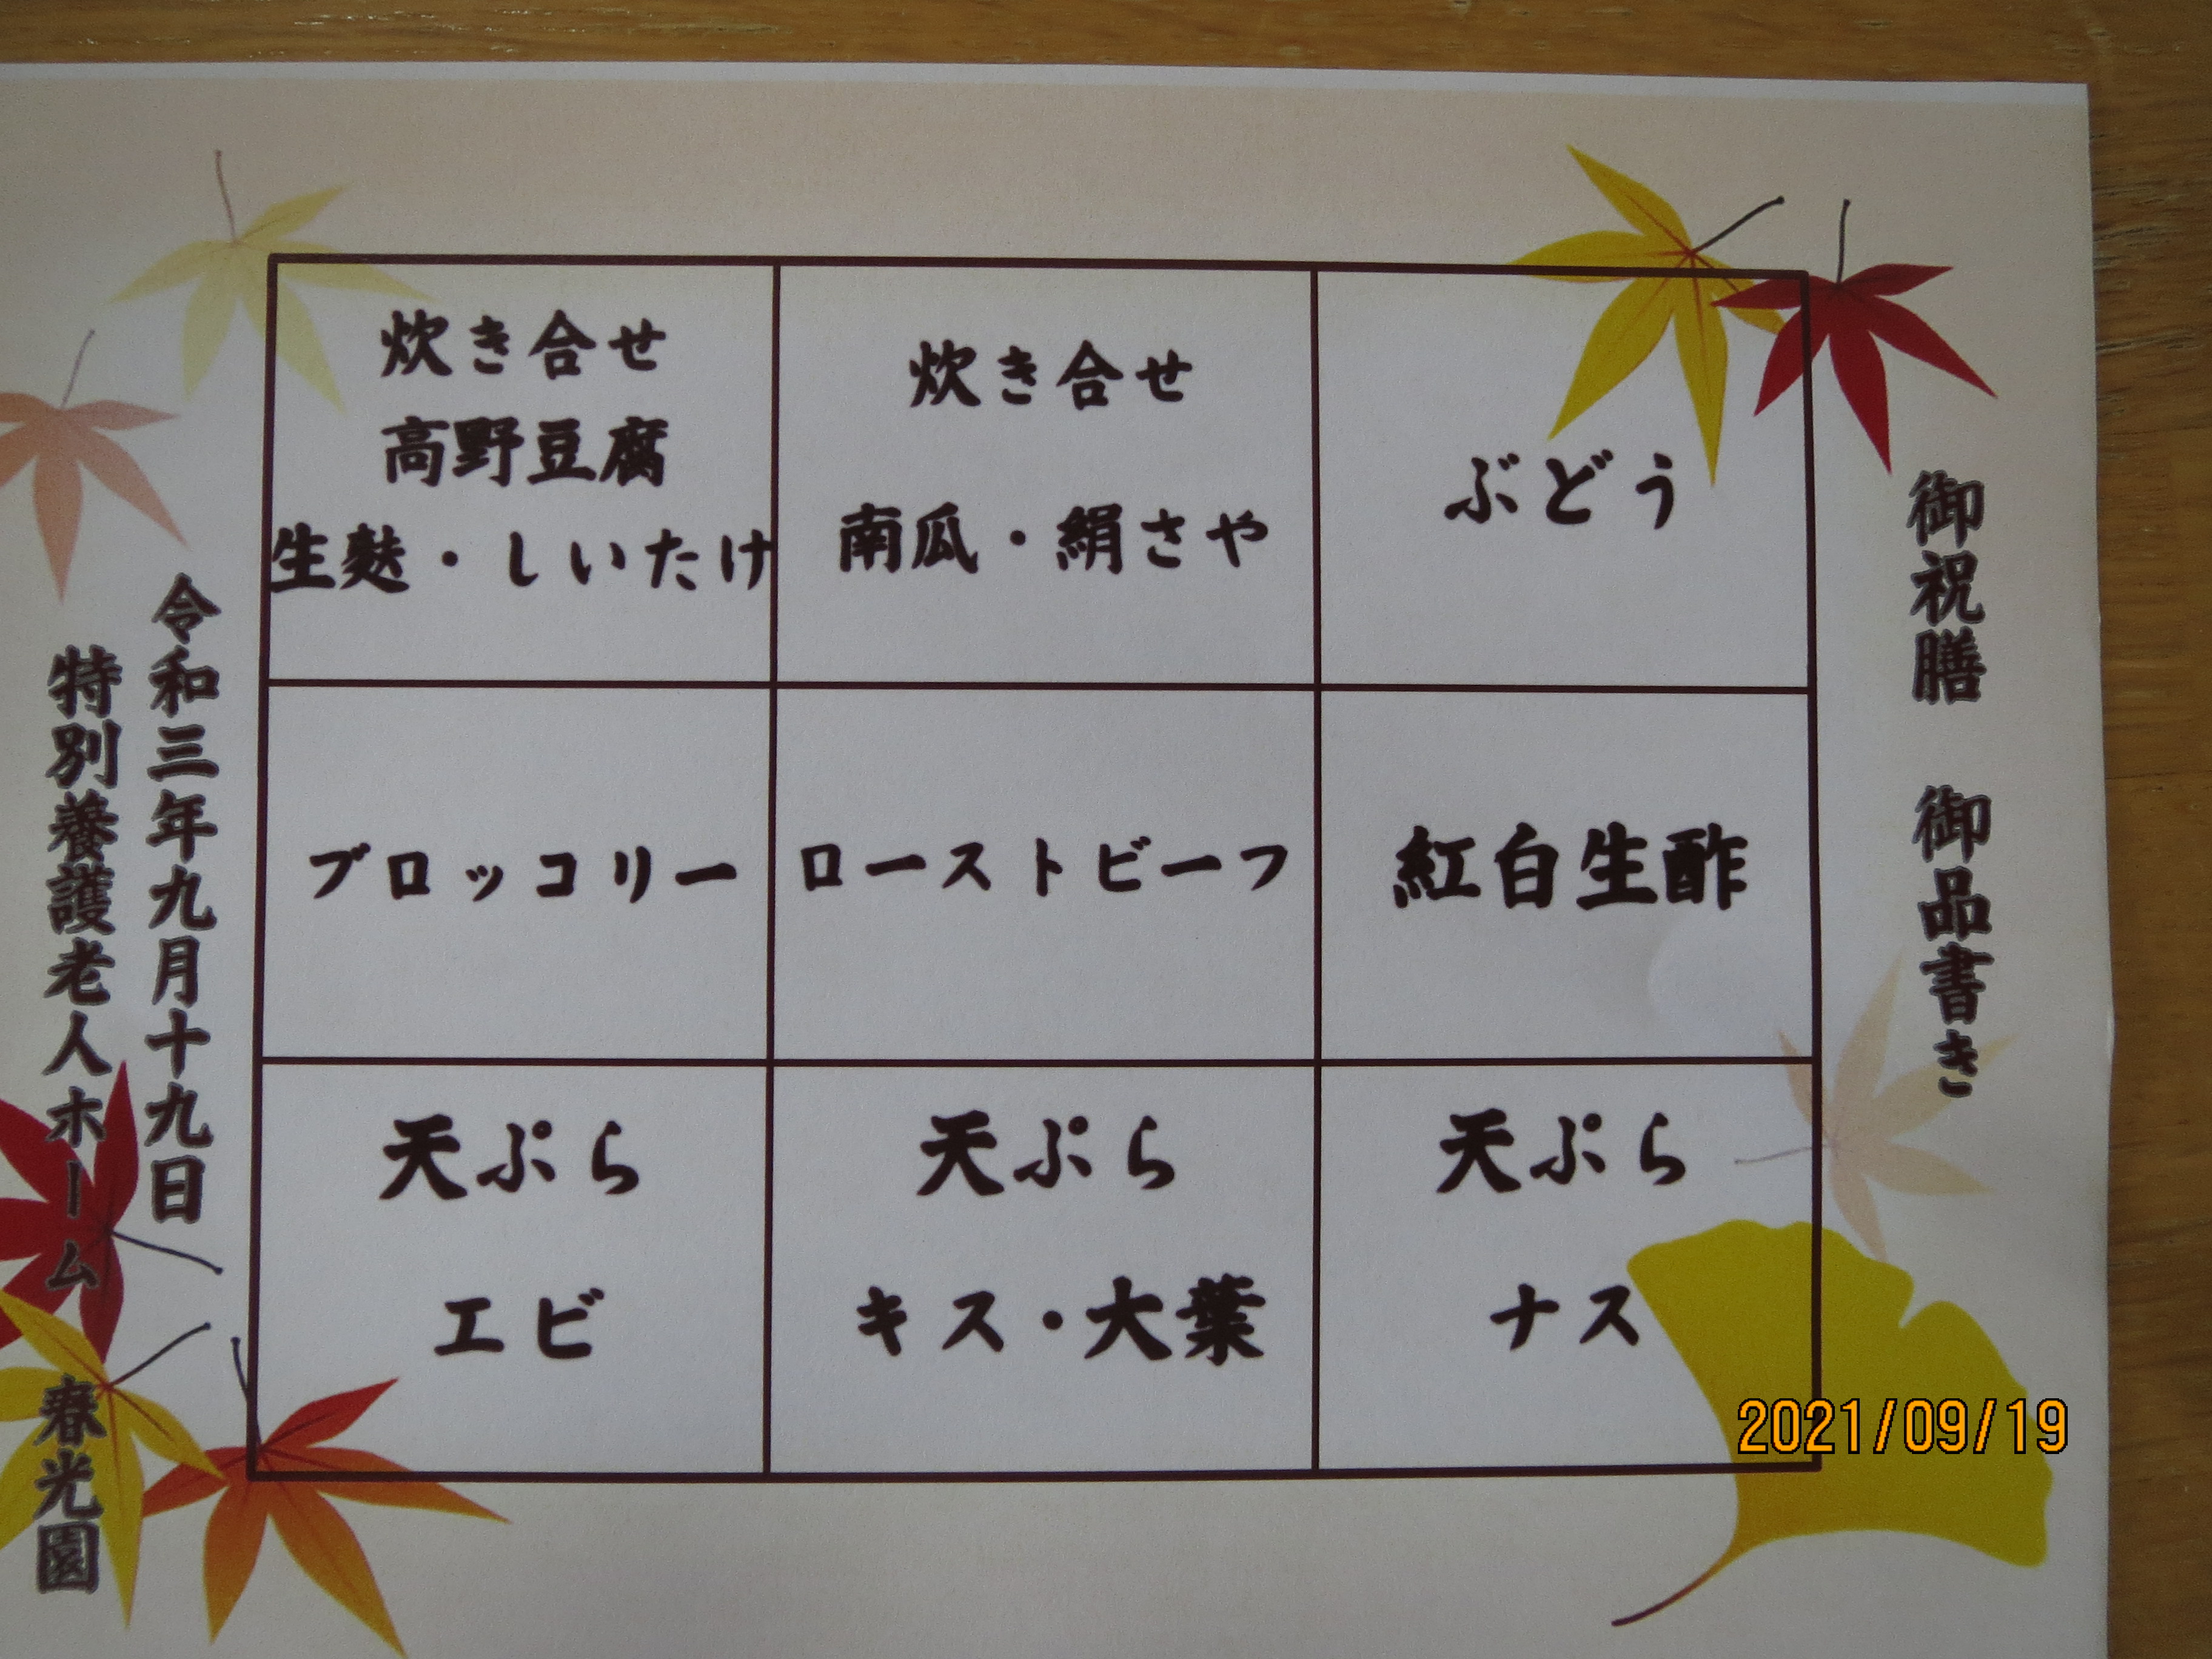 御祝膳　御品書き
炊き合せ
高野豆腐
生麩・しいたけ
炊き合せ
南瓜・絹さや
ぶどう
ブロッコリー
ローストビーフ
紅白生酢
天ぷら
エビ
天ぷら
キス・大葉
天ぷら
ナス
令和三年九月十九日
特別養護老人ホーム　春光園
2021/09/19